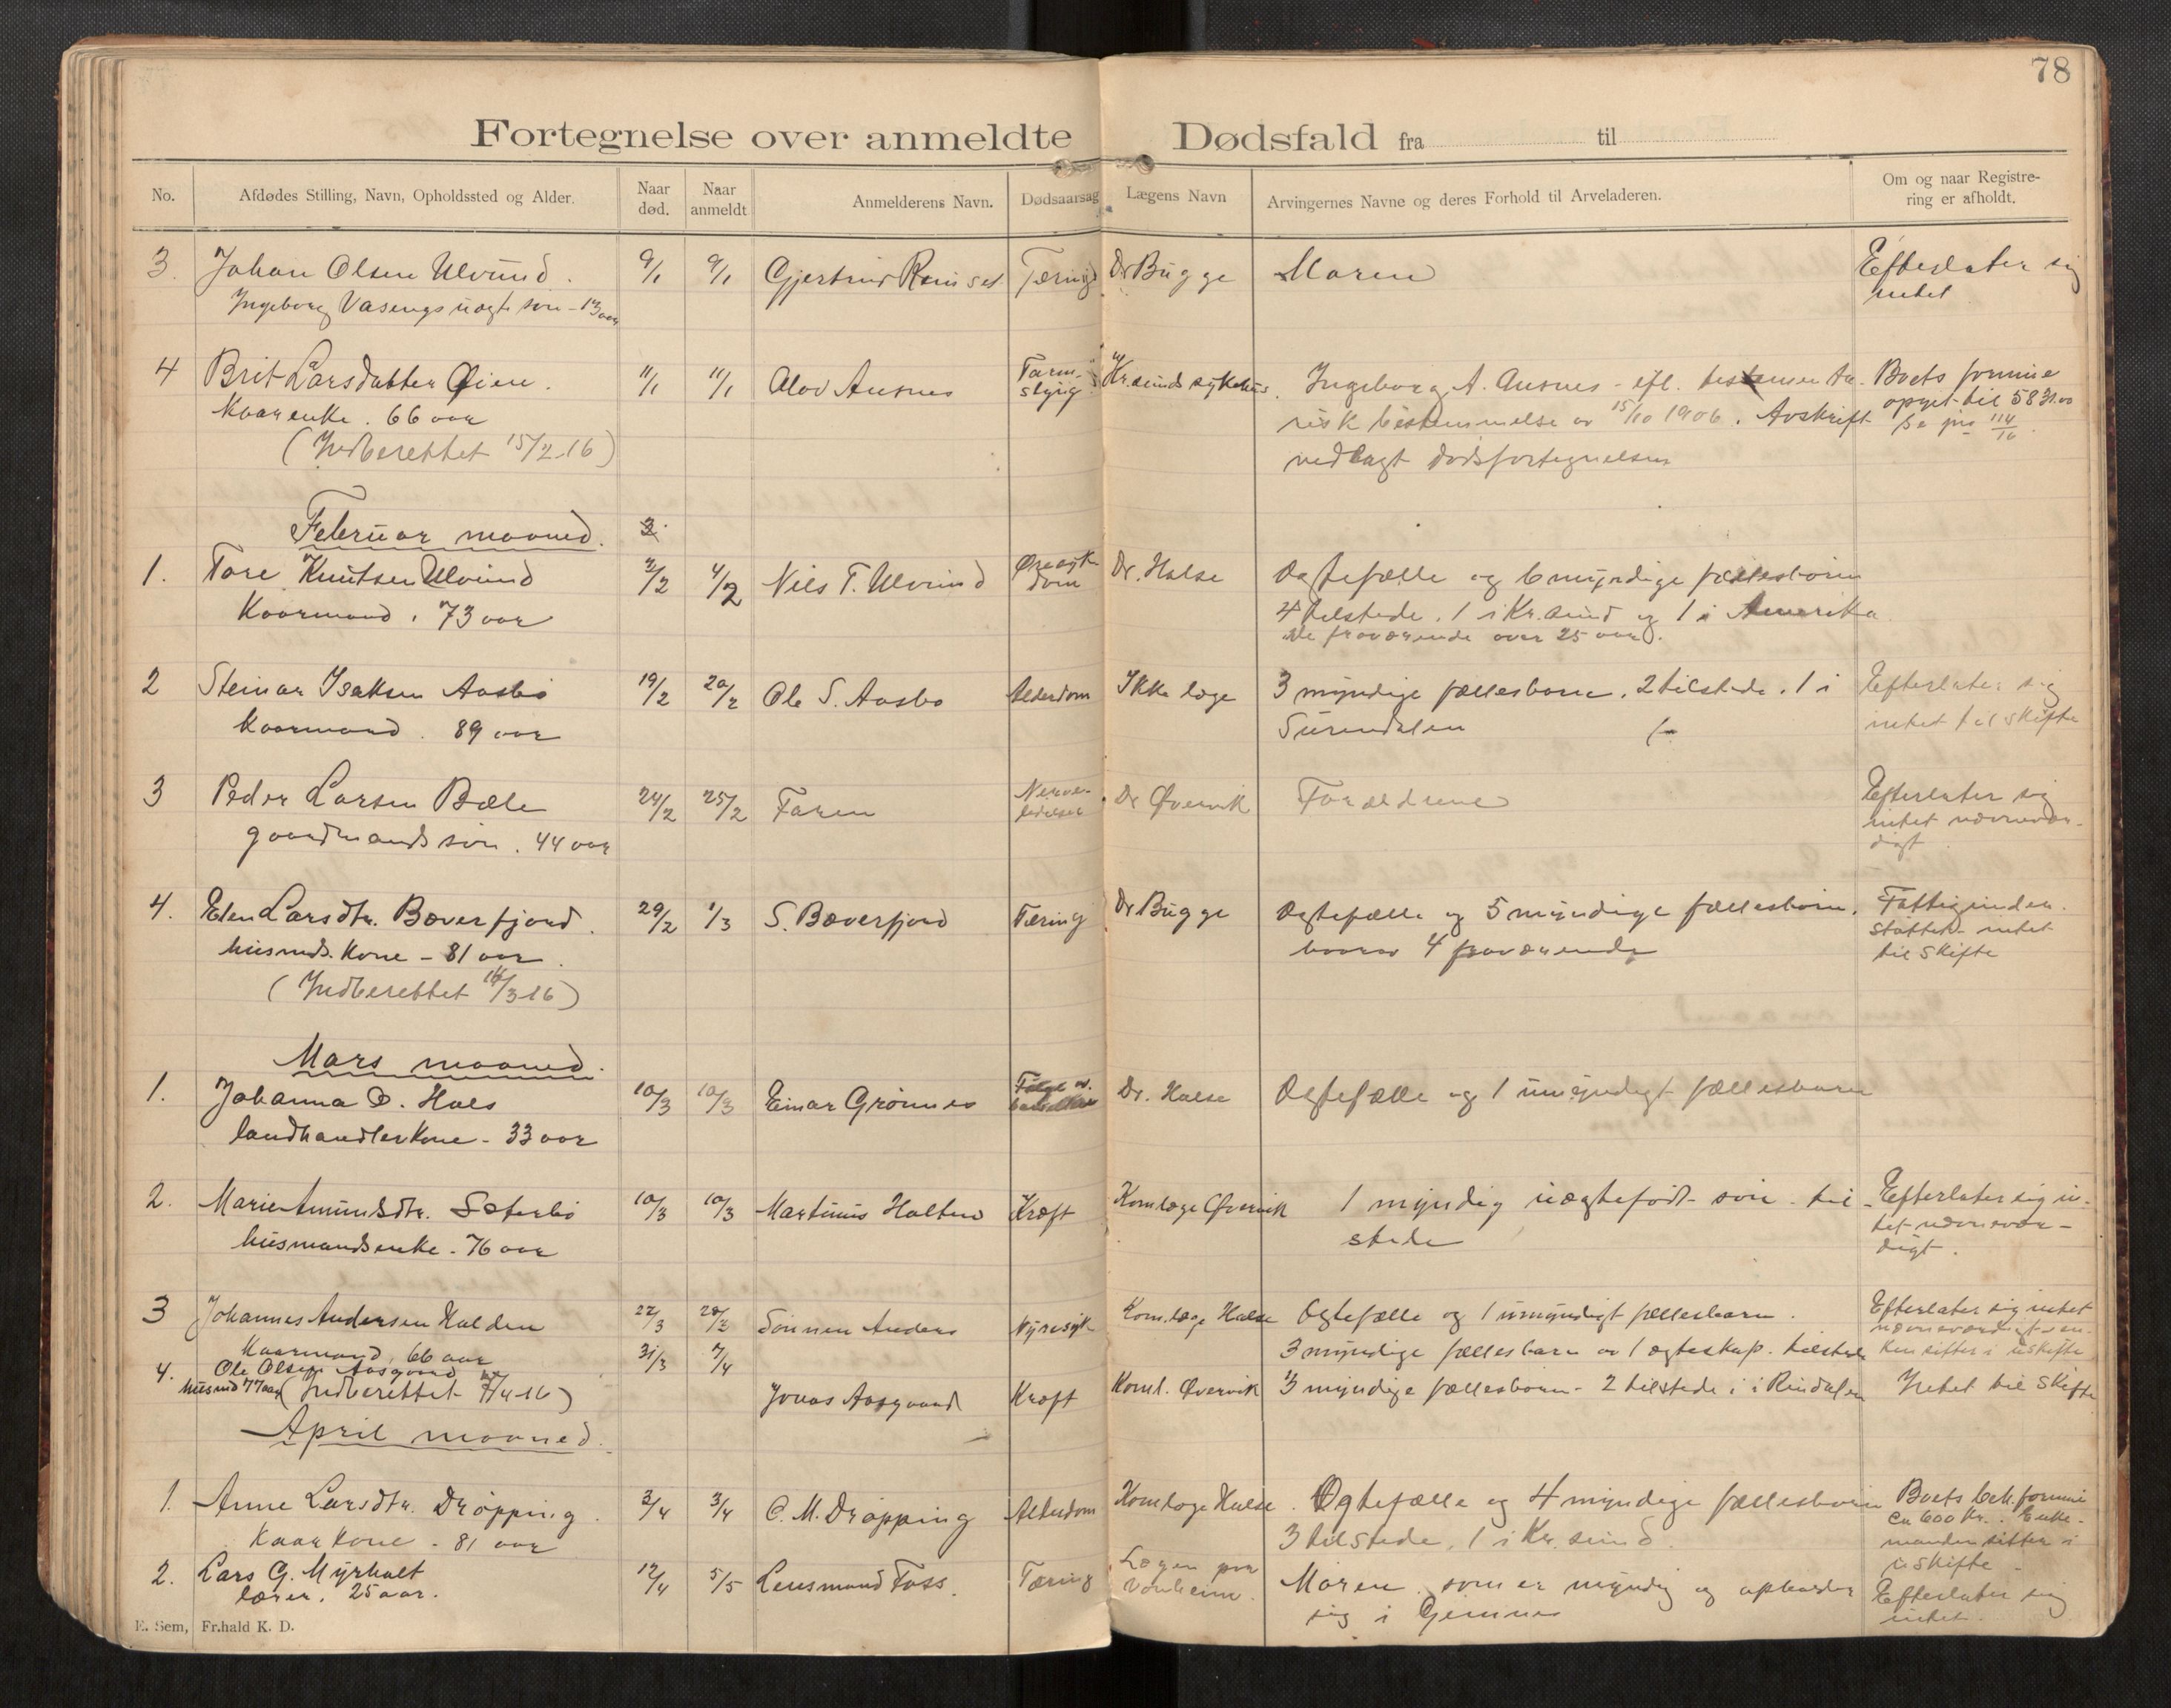 78
Fortegnelse over anmeldte Dødsfald fra til
No. Afdødes Stilling, Navn, Opholdssted og Alder. Naar død. Naar anmeldt Anmelderens Navn. Dødsaarsag Lægens Navn Arvingernes Navne og deres Forhold til Arveladeren. Om og naar Registrering er afholdt.
3. Johan Olsen Ulvund. 9/1 9/1 Gjertrud Tæring Dr Bugge Moren Efterlater sig
Ingeborg Vasengs uegte søn - 13 aar intet
4 Brit Larsdatter Øien. 11/1 11/1 Olav Ausnes Tarm- Kr.sunds sykehus. Ingeborg A. Ausnes - efl. Boets formue
Kaarenke. 66 aar slyng bestemmelse av 15/10 1906. Avskrift opgit til 5831.00
(Indberettet 15/2-16) vedlagt dødsfortegnelsen Se 114/16
Februar maaned. 3
1. Tore Knutsen Ulvund 3/2 4/2 Niels T. Ulvund Dr. Halse Egtefælle og 6 myndige fællesbørn
Kaarmand. 73 aar dom 4 tilstede. 1 i Kr.sund og 1 i Amerika
De fraværende over 25 aar.
2 Steinar Isaksen Aasbø 19/2 20/2 Ole S. Aasbø Alderdom Ikke læge 3 myndige fællesbørn. 2 tilstede. 1 i Efterlater sig
Kaarmand. 89 aar Surendalen intet til skifte
3 Peder Larsen Bæle 24/2 25/2 Faren Nerve- Dr Øvervik Forældrene Efterlater sig
gaardmands søn. 44 aar lidelse intet nævnevær-
digt
4. Elen Larsdtr. Bæverfjord. 29/2 1/3 S. Bæverfjord Tæring Dr Bugge Egtefælle og 5 myndige fællesbørn. Fattigunder-
husmds. kone - 81 aar. hvorav 4 fraværende støttet - intet
(Indberettet 14/3-16) til skifte
Mars maaned.
1. Johanna O. Hals 10/3 10/3 Einar Grønnes Følge av Dr. Halse Egtefælle og 1 umyndigt fællesbarn
landhandlerkone - 33 aar barselseng
2. Marie Amundsdtr. Sæterbø 10/3 10/3 Martinus Holten Kræft Kom.læge Øvervik 1 myndig uægtefødt søn - til- Efterlater sig in-
husmandsenke - 76 aar stede tet nævnevær-
digt.
3 Johannes Andersen Halden 22/3 Sønnen Anders Nyresyk Kom.læge Halse Egtefælle og 1 umyndigt fællesbarn. Efterlater sig intet
Kaarmand. 66 aar 3 myndige fællesbarn av 1 ægteskap. tilstede nævneværdigt en-
ken sitter i uskifte
4. Ole Olsen Aasgaard 31/3 7/4
husmd 77 aar (Indberettet 7/4-16) Jonas Aasgaard Kræft Koml. Øvervik 3 myndige fællesbørn - 2 tilstede 1 i Rindalen Intet til skifte
April maaned.
1. Anne Larsdtr. Drøpping. 3/4 3/4 O. M. Drøpping Alderdom Komlæge Halse. Egtefælle og 4 myndige fællesbørn Boets beh. formue
Kaarkone - 81 aar 3 tilstede, 1 i Kr. sund. ca 600 kr. Enke-
manden sitter i
uskifte -
2. Lars G. Myrholt 12/4 5/5 Lensmand Foss. Tæring Lægen paa Moren. som er myndig og opholder Efterlater sig
lærer. 25 aar. Vonheim. sig i Gjemnes intet.
E. Sem, Fr.hald K. D.